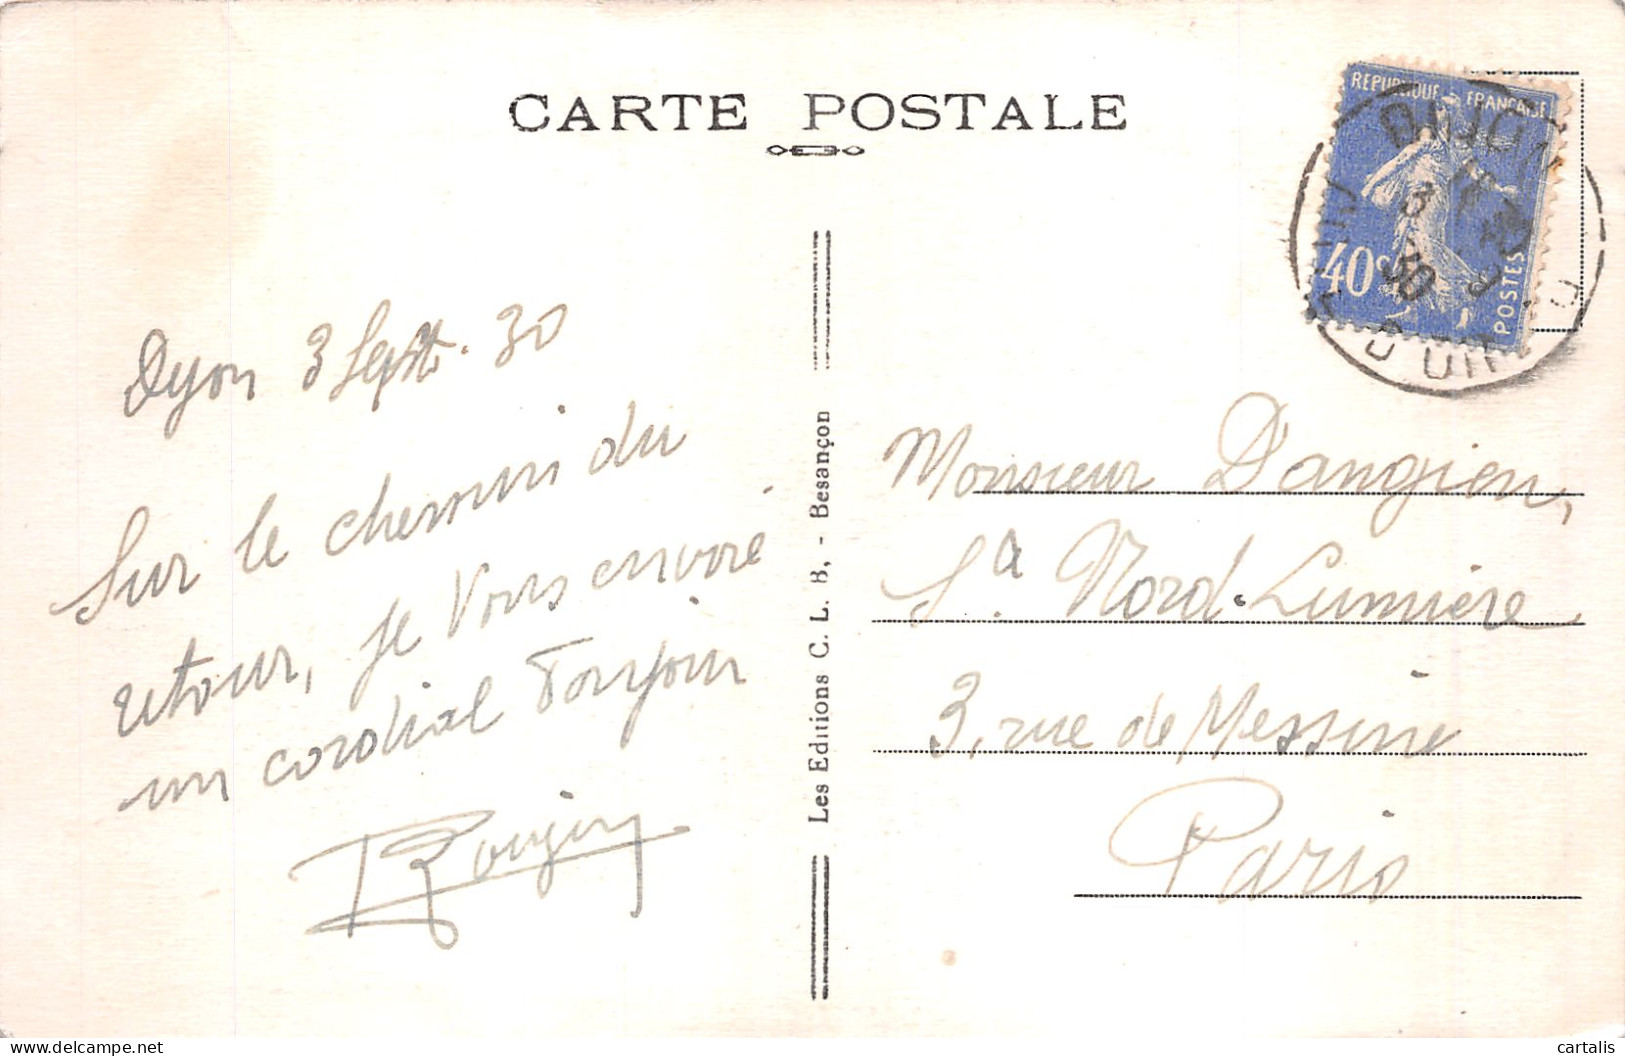 CARTE POSTALE
REPUBLIQUE FRANÇAISE
40 c
POSTES
DIJON
3
30
Dijon 3 Septb. 30
Sur le chemin du
retour, je vous envoie
un cordial bonjour
Les Editions C. L. B, - Besançon
Monsieur Dangien,
Sté Nord-Lumière
3, rue de Messine
Paris
cartalis